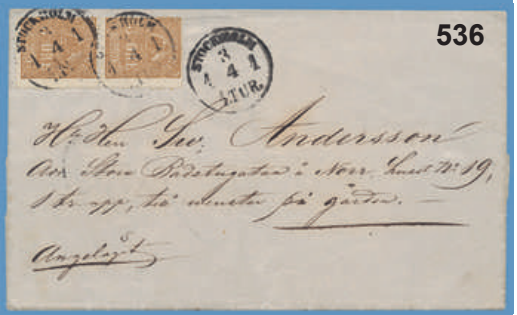 536
STOCKHOLM
3
1 4 1
STOCKHOLM
3
4 4 1
1 TUR.
Herr Andersson
Stora Badstugatan i Norr. huset No 19,
1 tr. upp, till wenster på gården. —
Angeläget